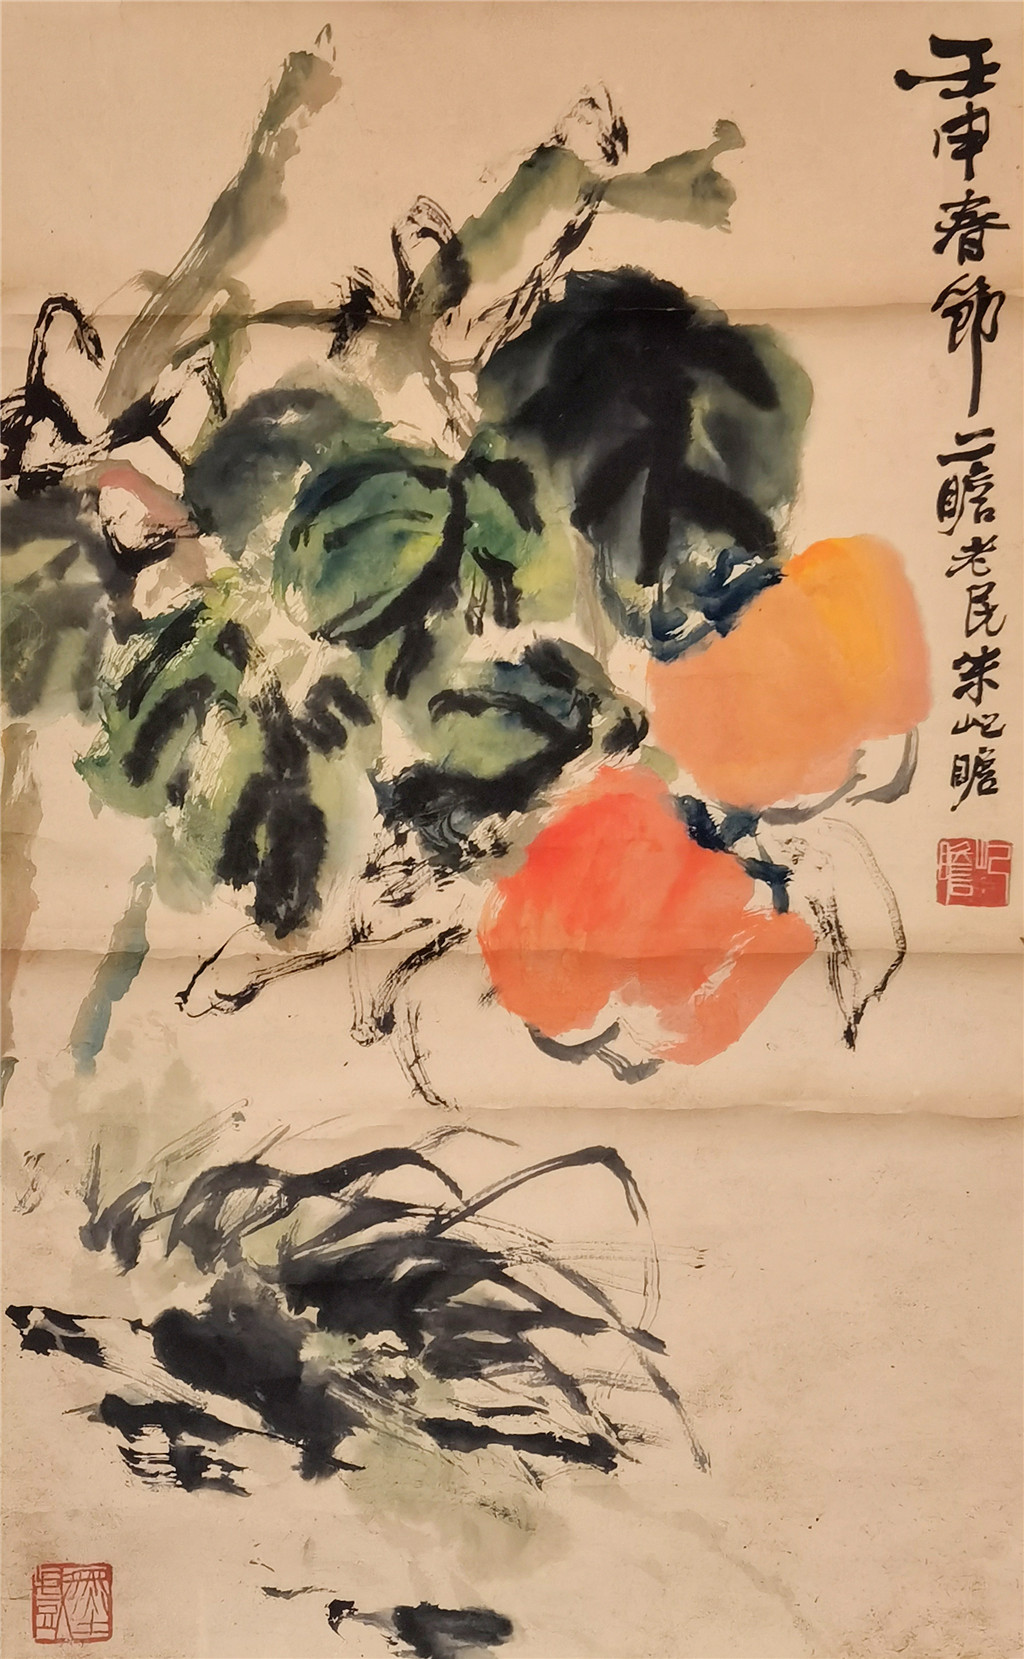 壬申春節二瞻老民朱屺瞻
屺瞻